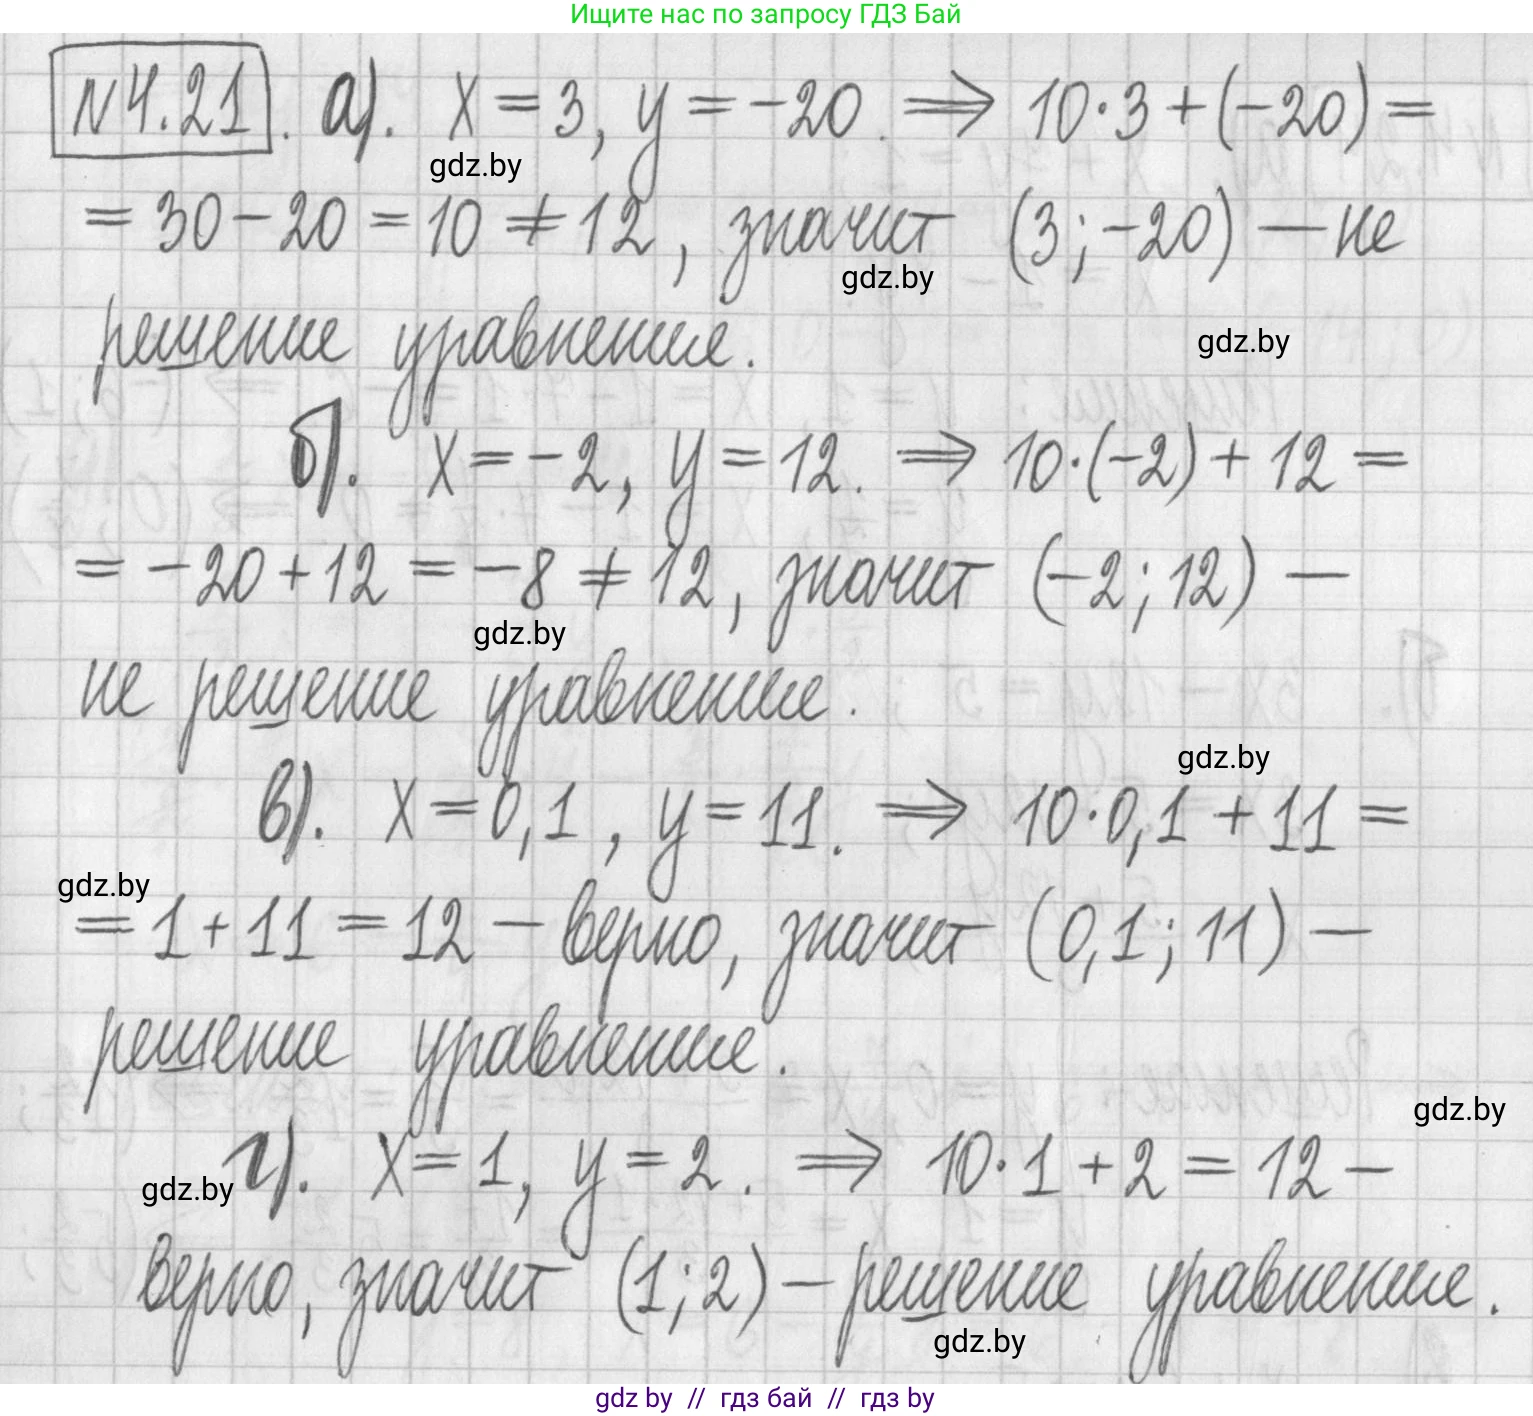 Ищите нас по запросу ГДЗ Бай
N4.21. а). x = 3, y = -20. ⟹ 10·3 + (-20) =
gdz.by
= 30 - 20 = 10 ≠ 12, значит (3; -20) — не
gdz.by
решение уравнение.
gdz.by
б). x = -2, y = 12. ⟹ 10·(-2) + 12 =
= -20 + 12 = -8 ≠ 12, значит (-2; 12) —
gdz.by
не решение уравнение.
gdz.by
в). x = 0,1, y = 11. ⟹ 10·0,1 + 11 =
gdz.by
= 1 + 11 = 12 — верно, значит (0,1; 11) —
решение уравнение.
gdz.by
г). x = 1, y = 2. ⟹ 10·1 + 2 = 12 —
gdz.by
верно, значит (1; 2) — решение уравнение.
gdz.by
gdz by // гдз бай // гдз by